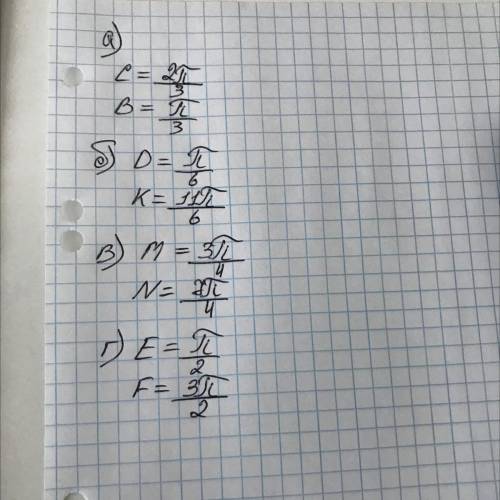 а)
C = 2π/3
B = π/3
б) D = π/6
K = 11π/6
в) M = 3π/4
N = π/4
г) E = π/2
F = 3π/2